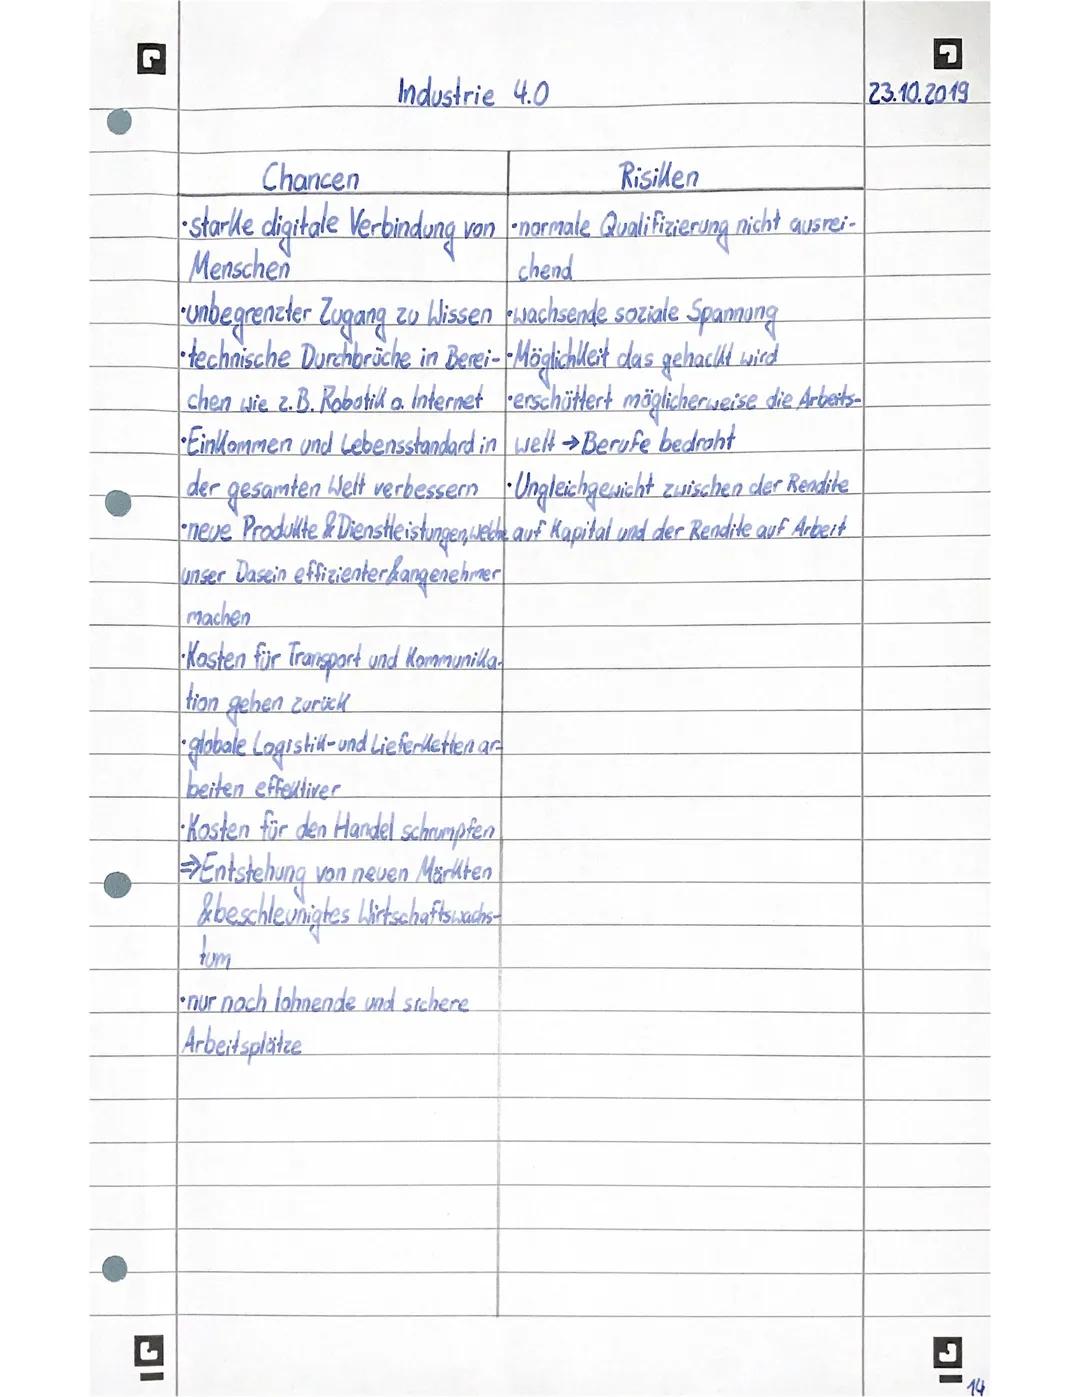 Industrie 4.0
23.10.2019
Chancen
·starke digitale Verbindung von
Menschen
·unbegrenzter Zugang zu Wissen
·technische Durchbrüche in Berei-
chen wie z.B. Robotik o. Internet
·Einkommen und Lebensstandard in
der gesamten Welt verbessern
·neue Produkte & Dienstleistungen, welche
unser Dasein effizienter & angenehmer
machen
·Kosten für Transport und Kommunika-
tion gehen zurück
·globale Logistik- und Lieferketten ar-
beiten effektiver
·Kosten für den Handel schrumpfen
⇒Entstehung von neuen Märkten
& beschleunigtes Wirtschaftswachs-
tum
·nur noch lohnende und sichere
Arbeitsplätze
Risiken
·normale Qualifizierung nicht ausrei-
chend
·wachsende soziale Spannung
·Möglichkeit das gehackt wird
·erschüttert möglicherweise die Arbeits-
welt → Berufe bedroht
·Ungleichgewicht zwischen der Rendite
auf Kapital und der Rendite auf Arbeit
14